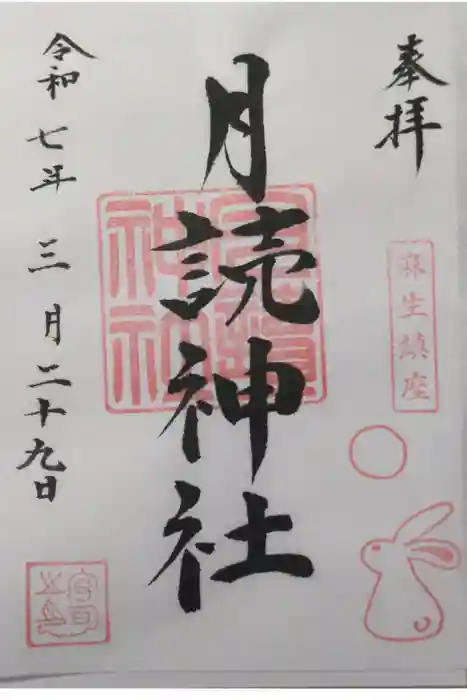 奉拝
麻生鎮座
月読神社
令和七年三月二十九日